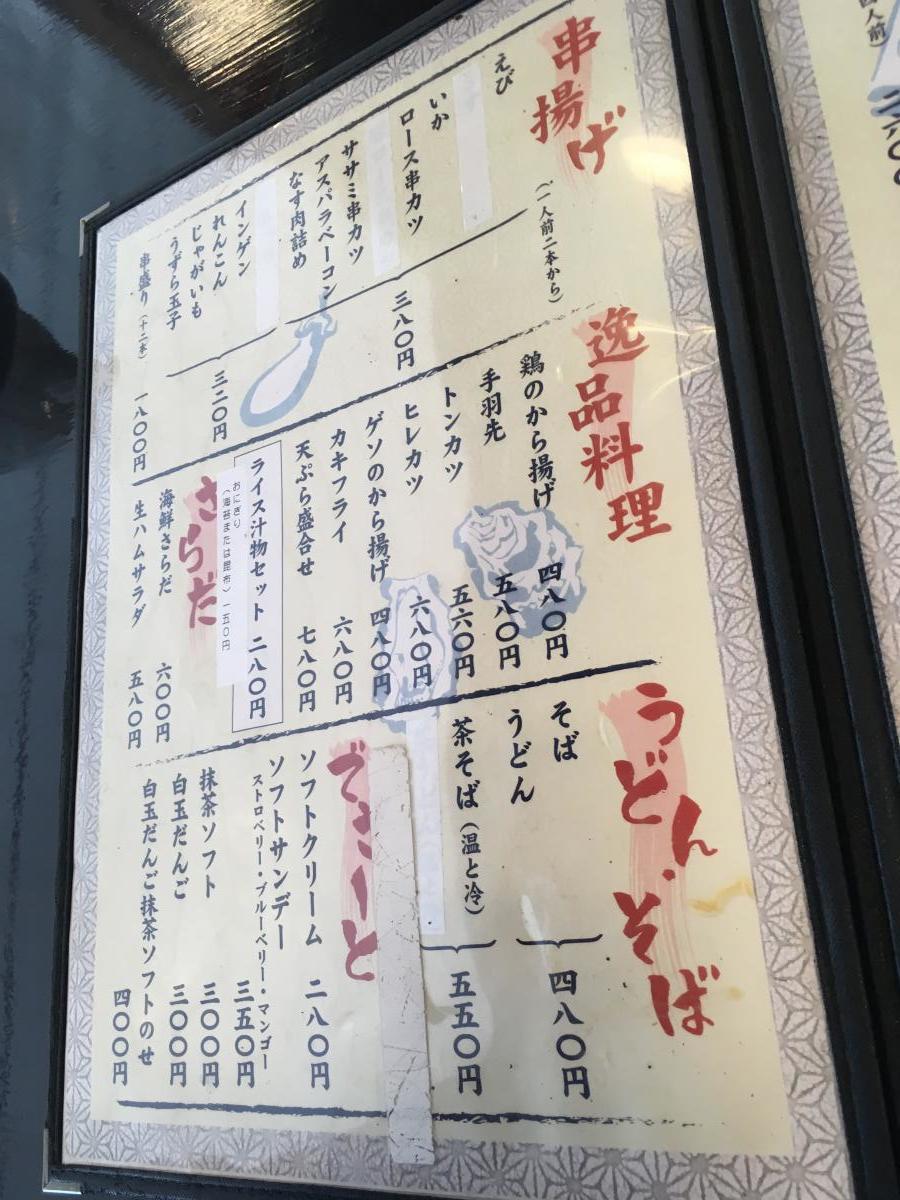 串揚げ
(一人前二本から)
えび
いか
ロース串カツ
三八〇円
ササミ串カツ
アスパラベーコン
なす肉詰め
インゲン
れんこん
じゃがいも
うずら玉子
三二〇円
串盛り(十二本)
一八〇〇円
逸品料理
鶏のから揚げ 四八〇円
手羽先 五八〇円
トンカツ 五六〇円
ヒレカツ 六八〇円
ゲソのから揚げ 四八〇円
カキフライ 六八〇円
天ぷら盛合せ 七八〇円
ライス汁物セット 二八〇円
おにぎり
(海苔または昆布)一五〇円
さらだ
海鮮さらだ 六〇〇円
生ハムサラダ 五八〇円
うどん・そば
そば
うどん
四八〇円
茶そば(温と冷)
五五〇円
でざーと
ソフトクリーム 二八〇円
ソフトサンデー
ストロベリー・ブルーベリー・マンゴー
三五〇円
抹茶ソフト 三〇〇円
白玉だんご 三〇〇円
白玉だんご抹茶ソフトのせ
四〇〇円